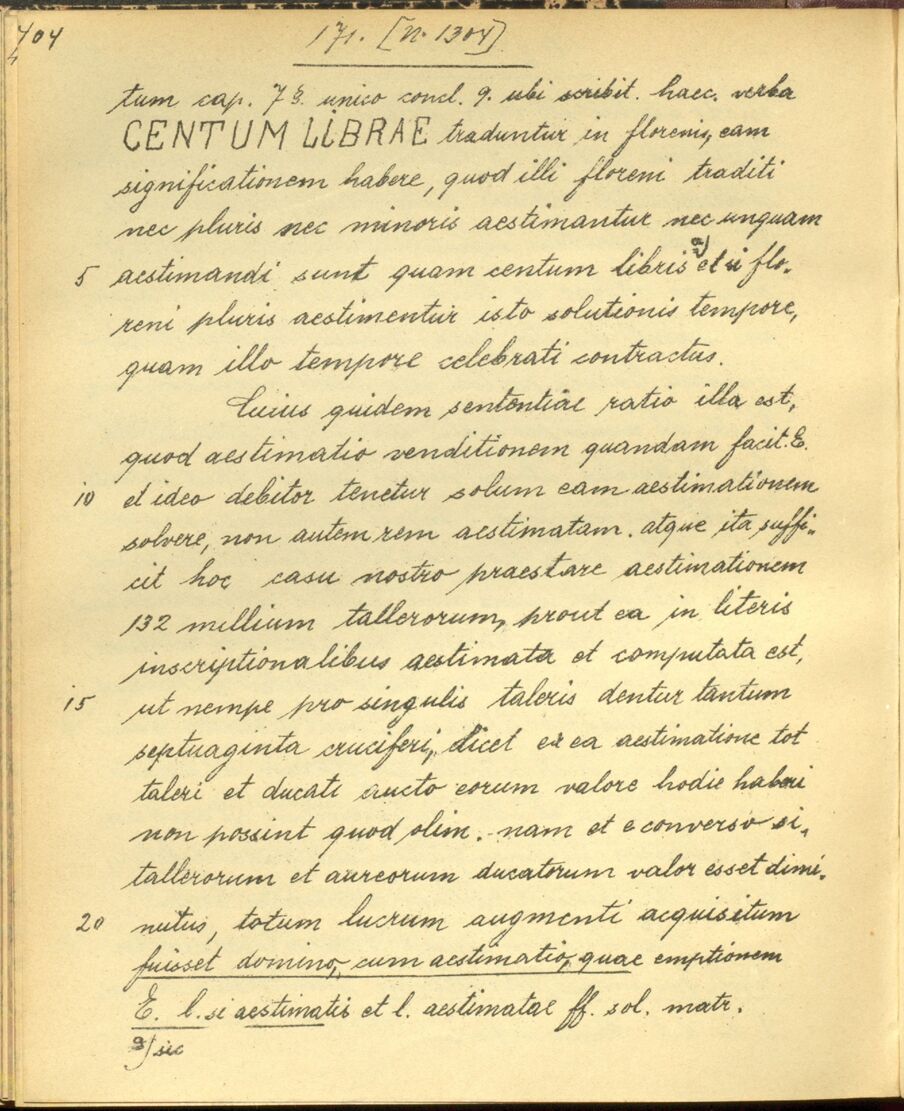 404
171. [N. 1304]
tum cap. 7 §. unico concl. 9. ubi scribit. haec. verba
CENTUM LIBRAE traduntur in florenis, eam
significationem habere, quod illi floreni traditi
nec pluris nec minoris aestimantur nec unquam
5 aestimandi sunt quam centum libris a) et si flo-
reni pluris aestimentur isto solutionis tempore,
quam illo tempore celebrati contractus.
Cuius quidem sententiae ratio illa est,
quod aestimatio venditionem quandam facit. E.
10 et ideo debitor tenetur solum eam aestimationem
solvere, non autem rem aestimatam. atque ita suffi-
cit hoc casu nostro praestare aestimationem
132 millium tallerorum, prout ea in literis
inscriptionalibus aestimata et computata est,
15 ut nempe pro singulis taleris dentur tantum
septuaginta cruciferi, licet ex ea aestimatione tot
taleri et ducati aucto eorum valore hodie haberi
non possint quod olim. nam et e converso si
tallerorum et aureorum ducatorum valor esset dimi-
20 nutus, totum lucrum augmenti acquisitum
fuisset domino, cum aestimatio, quae emptionem
E. l. si aestimatis et l. aestimatae ff. sol. matr.
a) sic